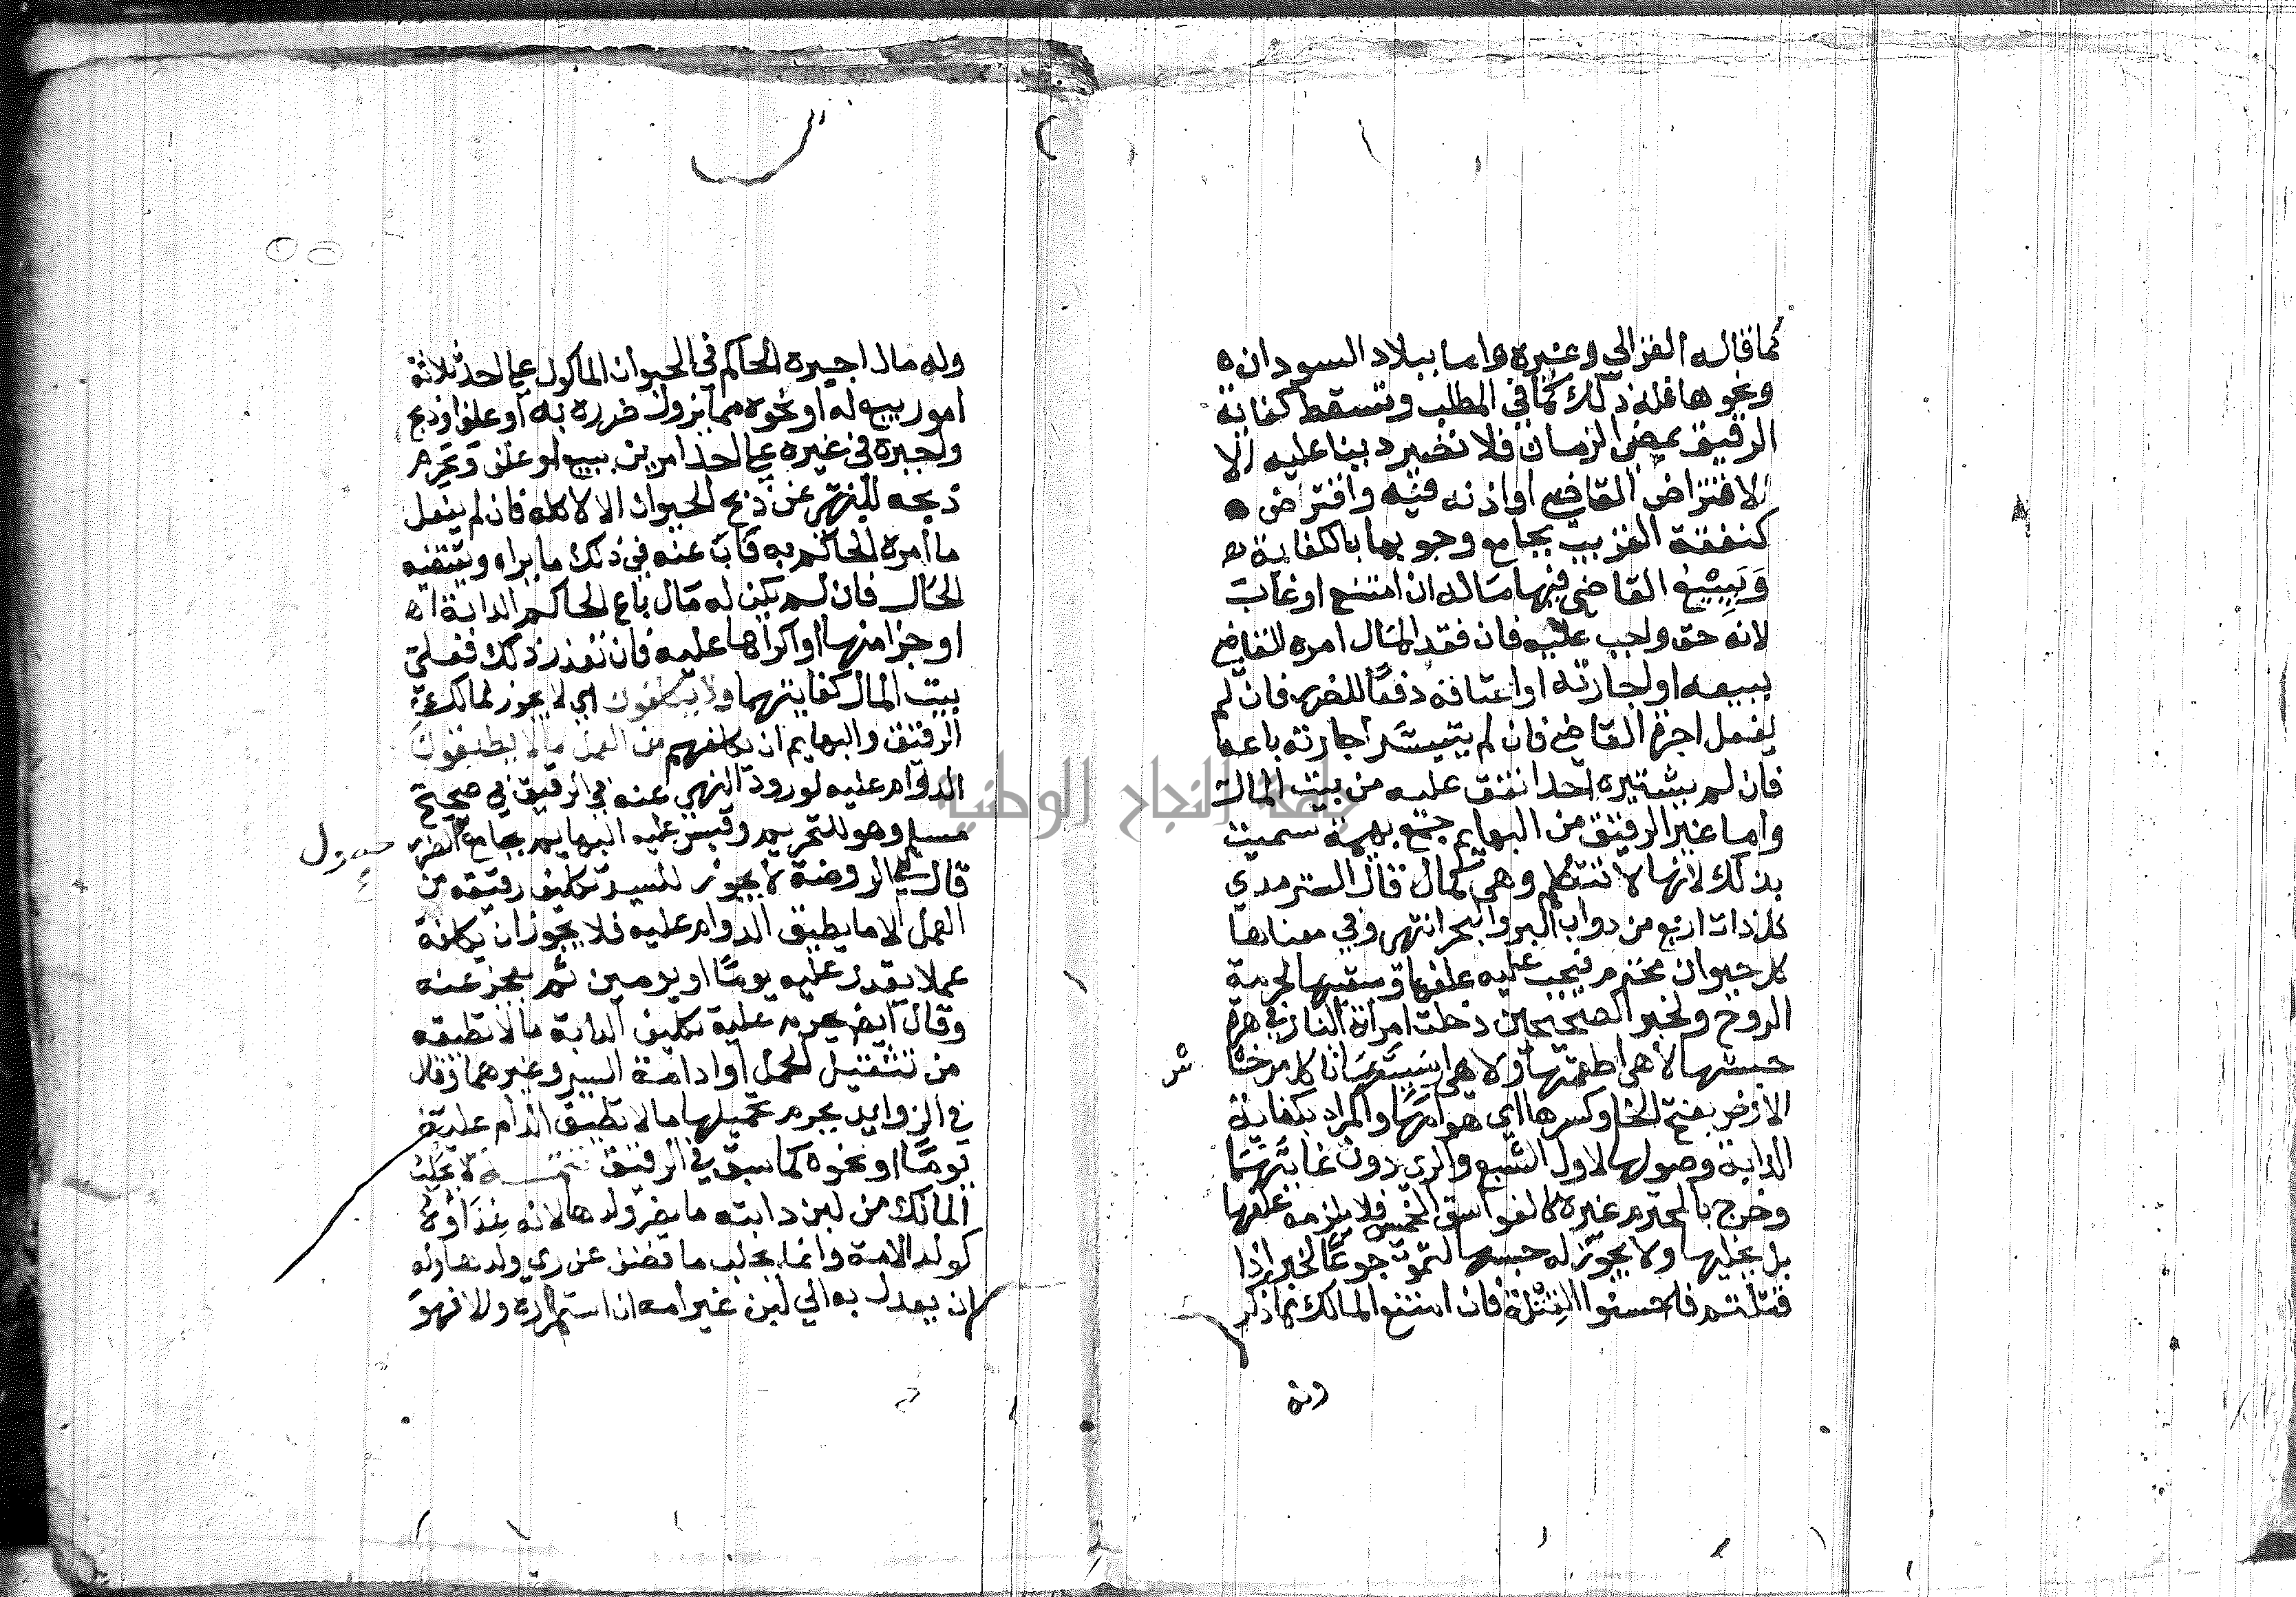 كما قاله الغزالي وغيره واما ببلاد السودان ه
ونحوها فله ذلك كما في المطلب وتسقط كفاية
الرقيق بمضي الزمان فلا تضير دينا عليه الا
لافتراض القاضي او اذنه فيه واقترض ه
كنفقة القريب بجامع وجوبها بالكفاية ه
وَيَبِيْعُ القاضي فيها ماله ان امتنع او غاب
لانه حق واجب عليه فان فقد المال امره القاضي
ببيعه او اجارته او اعتاقه دفعًا للضرر فان لم
يفعل اجره القاضي فان لم يتيسَّر اجارته باعه
فان لم يشتريه احد انفق عليه من بيت المال
واما غير الرقيق من البهايم جمع بهيمة سميت
بذلك لانها لا تتكلم وهي كما قال الترمدي
كل ذات اربع من دواب البر والبحر انتهى وفي معناها
كل حيوان محترم فيجب عليه علفها وسقيها لحرمة
الروح ولخبر الصحيحين دخلت امراة النار في هرة
حبستها لا هي اطعمتها ولا هي ارسلتها تاكل من خشا
الارض بفتح الخا وكسرها اي هوامها والمراد بكفاية
الدابة وصولها لاول الشبع والري دون غايتهما
وخرج بالمحترم غيره كالفواسق الخمس فلا يلزمه علفها
بل يخليها ولا يجوز له حبسها لتموت جوعًا لخبر اذا
قتلتم فاحسنوا القِتْلة فان امتنع المالك مما ذكر
وله
وله مال اجبره الحاكم في الحيوان الماكول على احد ثلاثة
امور بيع له او نحوه مما يزول ضرره به او علف او ذبح
واجبره في غيره على احد امرين بيع او علف وَيَحْرم
ذبحه للنهي عن ذبح الحيوان الا لاكله فان لم يفعل
ما أمره الحاكم به ناب عنه في ذلك ما يراه ويقتضيه
الحال فان لم يكن له مال باع الحاكم الدابة
او جزا منها او اكراها عليه فان تعذر ذلك فعلى
بيت المال كفايتهما ولا يكلفون اي لا يجوز لمالك
الرقيق والبهايم ان يكلفهم من العمل ما لا يطيقون
الدوام عليه لورود النهي عنه في الرقيق في صحيح
مسلم وهو للتحريم وقيس عليه البهايم بجامع الضرر
قال في الروضة لا يجوز للسيد تكليف رقيقه من
العمل الا ما يطيق الدوام عليه فلا يجوز ان يكلفه
عملا يقدر عليه يومًا او يومين ثم يعجز عنه
وقال ايضا يحرم عليه تكليف الدابة ما لا تطيقه
من تثقيل الحمل او ادامة السير وغيرهما وقال
في الزوايد يحرم تحميلها ما لا تطيق الدام عليه
يومًا او نحوه كما سبق في الرقيق تتمـــة لا يحلب
المالك من لبن دابته ما يضر ولدها لانه غِذَاؤهُ
كولد الامة وانما يحلب ما فضل عن ري ولدها وله
ان يعدل به الي لبن غير امه ان استمراه والا فهو